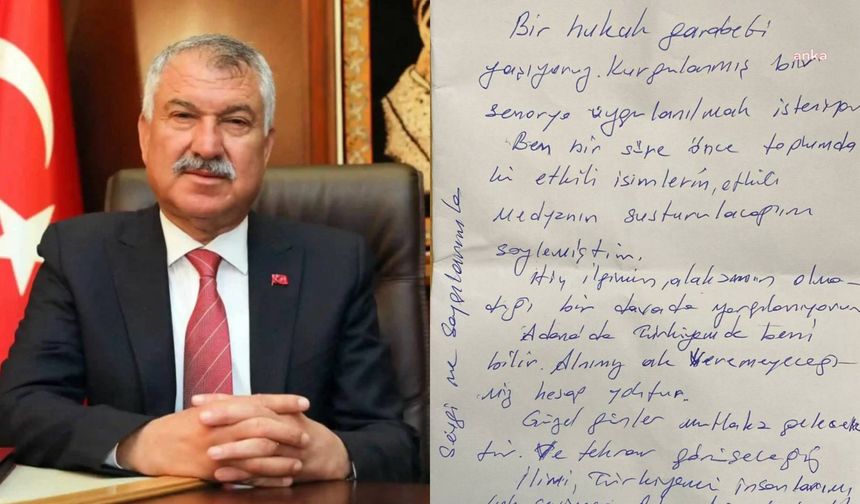 Bir hukuk garabeti
anka
yaşıyoruz. Kurgulanmış bir
senaryo uygulanılmak isteniyor
Ben bir süre önce toplumda
ki etkili isimlerin, etkili
medyanın susturulacağını
söylemiştim.
Hiç ilgimin, alakamın olma-
dığı bir davada yargılanıyorum
Adana'da Türkiyemde beni
bilir. Alnımız ak veremeyeceği-
miz hesap yoktur.
Güzel günler mutlaka gelecek
tir. Ve tekrar görüşeceğiz
İlimi, Türkiyemi insanlarımı
Sevgi ve Saygılarımla